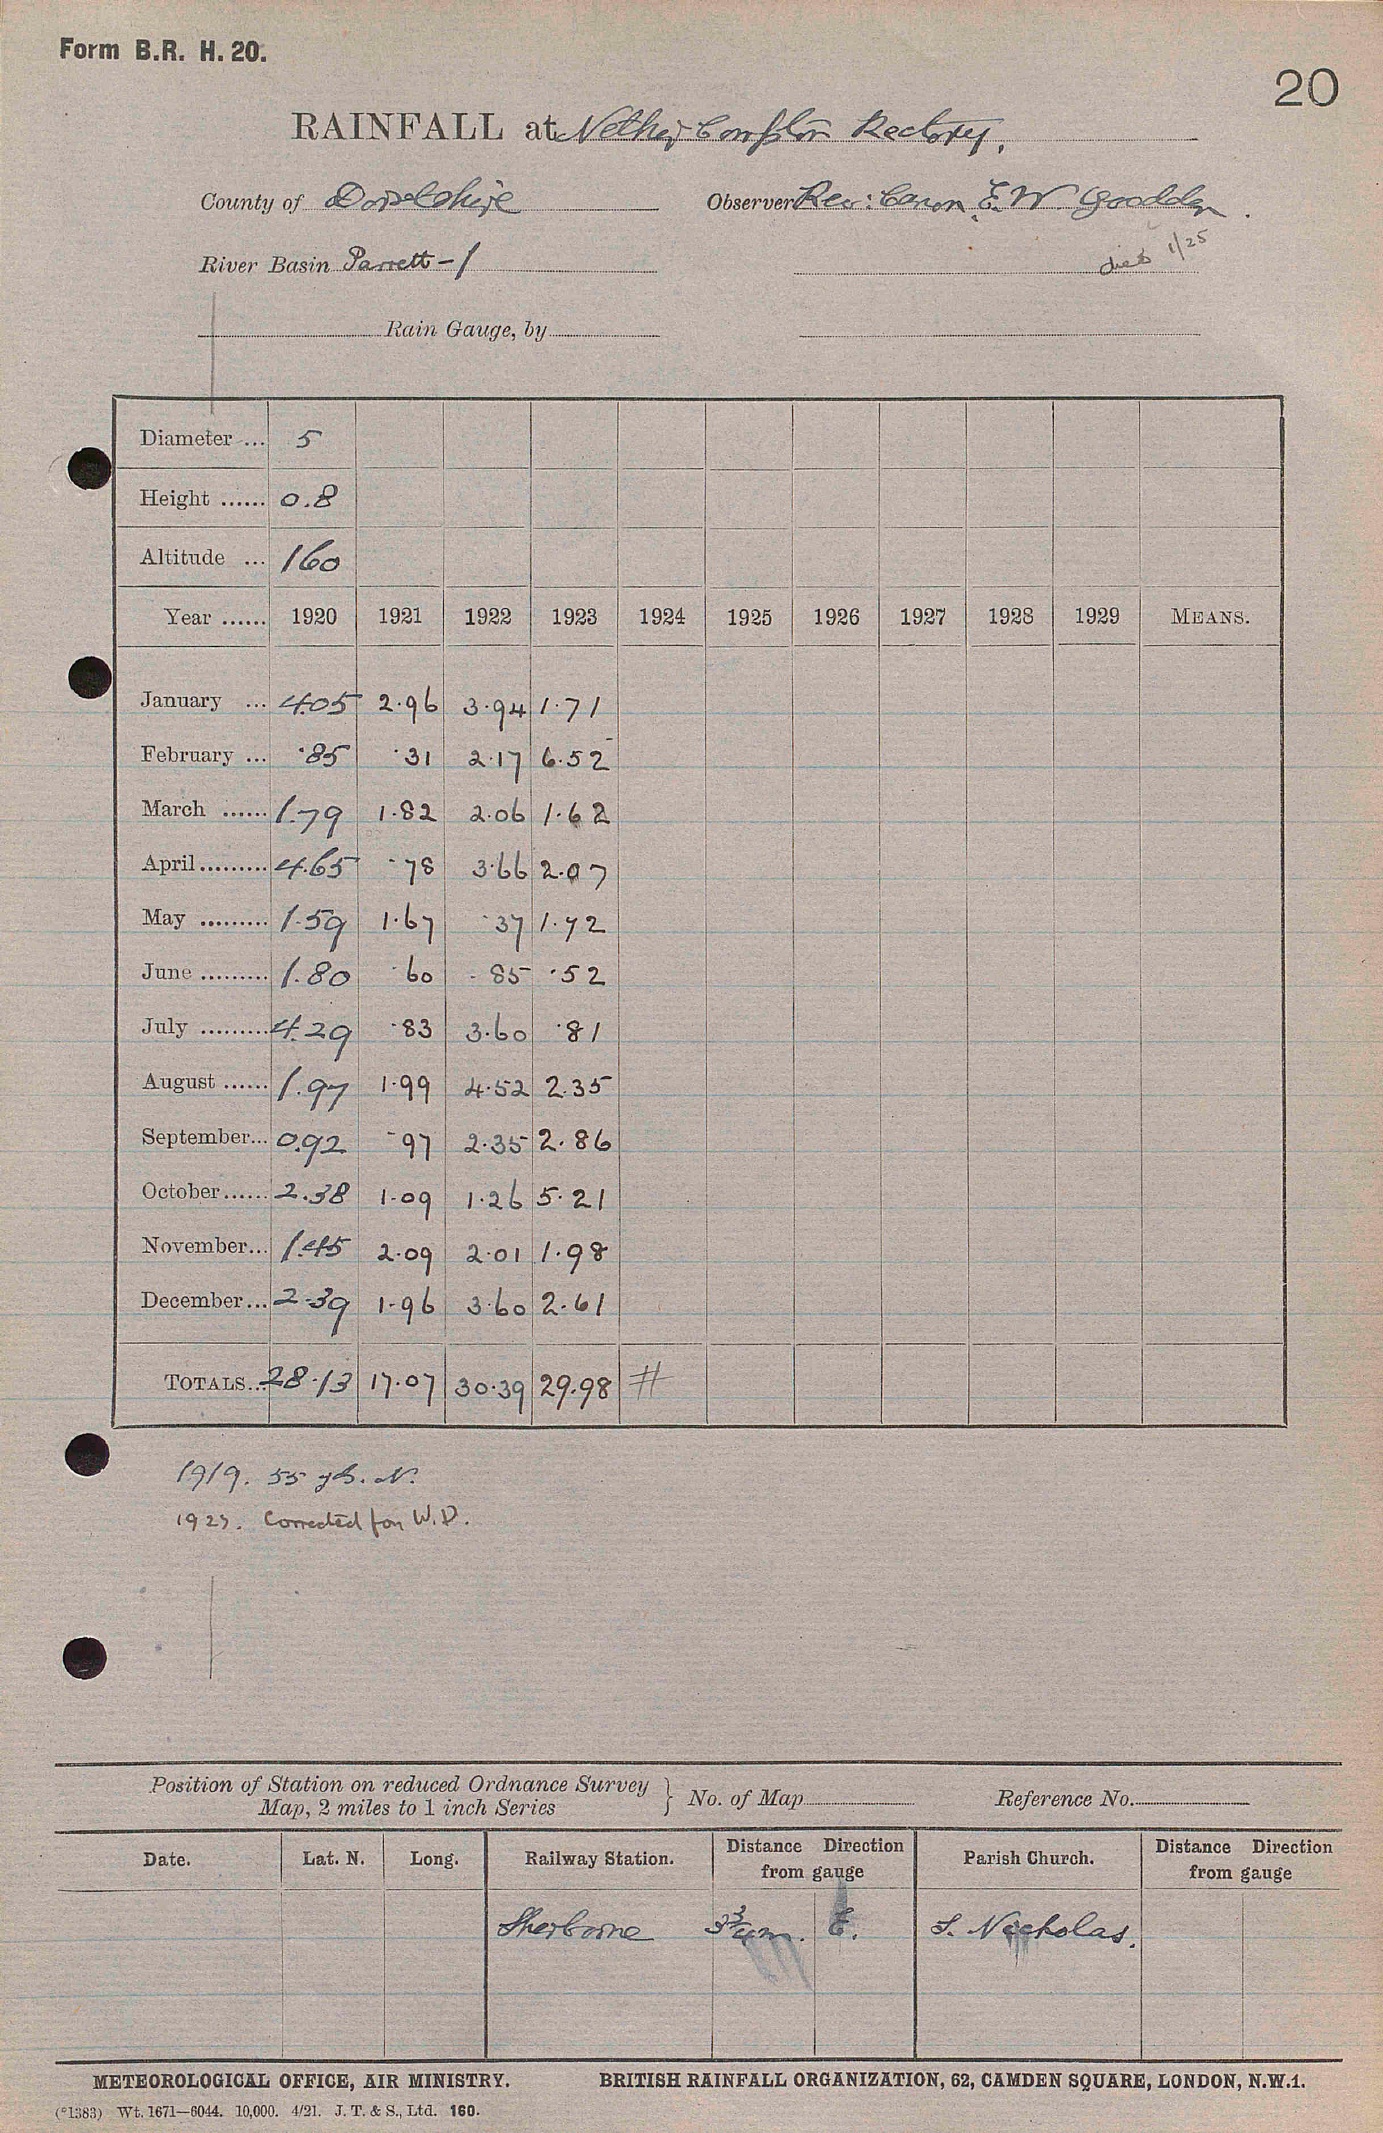 Form B.R. H. 20.
20
RAINFALL at Nether Compton Rectory.
County of Dorsetshire Observer Rev: Canon. E. W. Goodden.
River Basin Parrett - 1 died 1/25
Rain Gauge, by
Diameter ... 5
Height ...... 0.8
Altitude ... 160
Year ...... 1920 1921 1922 1923 1924 1925 1926 1927 1928 1929 MEANS.
January ... 4.05 2.96 3.94 1.71
February ... .85 .31 2.17 6.52
March ...... 1.79 1.82 2.06 1.62
April ......... 4.65 .78 3.66 2.07
May ......... 1.59 1.67 .37 1.72
June ......... 1.80 .60 .85 .52
July ......... 4.29 .83 3.60 .81
August ...... 1.97 1.99 4.52 2.35
September... 0.92 .97 2.35 2.86
October...... 2.38 1.09 1.26 5.21
November... 1.45 2.09 2.01 1.98
December... 2.39 1.96 3.60 2.61
TOTALS... 28.13 17.07 30.39 29.98 #
1919. 55 yds. N.
1923. Corrected for W.D.
Position of Station on reduced Ordnance Survey
Map, 2 miles to 1 inch Series } No. of Map Reference No.
Date. Lat. N. Long. Railway Station. Distance Direction from gauge Parish Church. Distance Direction from gauge
Sherborne 3 3/4 m. E. S. Nicholas.
METEOROLOGICAL OFFICE, AIR MINISTRY. BRITISH RAINFALL ORGANIZATION, 62, CAMDEN SQUARE, LONDON, N.W.1.
(*1383) Wt. 1671—6044. 10,000. 4/21. J. T. & S., Ltd. 160.